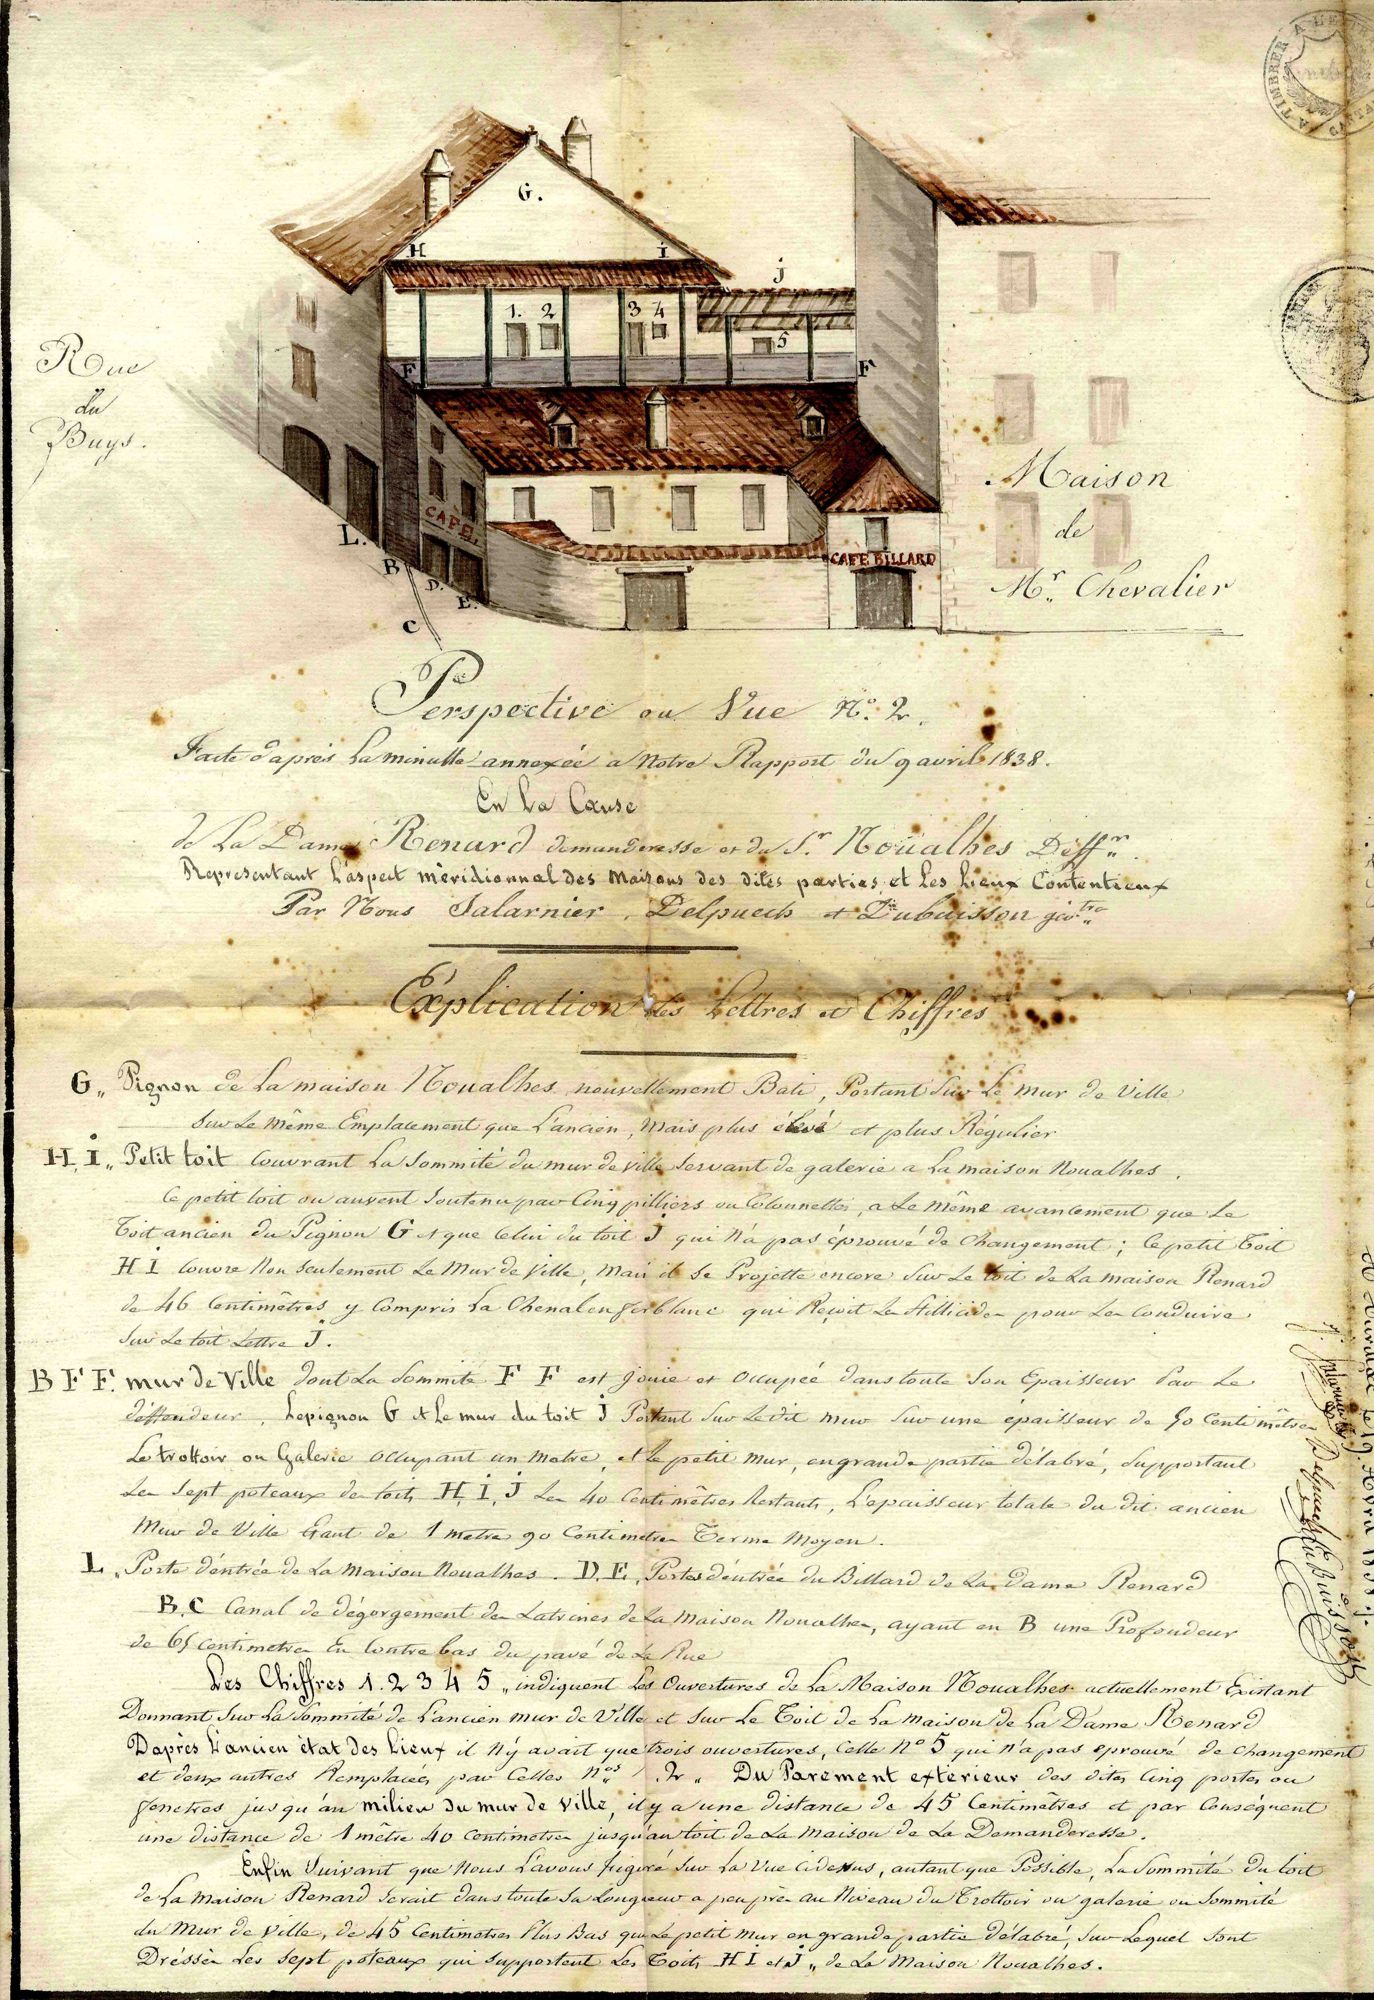 A TIMBRER A L'EXTR
G.
H
i
j
1.
2
3
4
5
F
F
Rue
du
Buys.
CAFÉ.
CAFE BILLARD
L.
B
D.
E.
C
Maison
de
Mr. Chevalier
Perspective ou Vue No. 2.
Faite d'après la minutte annexée a notre Rapport du 9 avril 1838.
En La Cause
de La Dame Renard demanderesse et du Sr. Noüalhes Deffr.
Representant L'aspect méridionnal des Maisons des dites parties, et Les Lieux Contentieux
Par Nous Salarnier, Delpuech et Dubuisson géotre
Explication des Lettres et Chiffres
G,, Pignon de La maison Noualhes nouvellement Bati, Portant Sur Le mur de Ville
Sur Le même Emplacement que L'ancien, mais plus élevé et plus Régulier
H, i,, Petit toit Couvrant La Sommité du mur de ville Servant de galerie a La maison Noualhes.
Ce petit toit ou auvent Soutenu par Cinq pilliers ou Colonnettes, a Le même avancement que Le
Toit ancien du Pignon G et que Celui du toit J qui n'a pas éprouvé de Changement; Ce petit Toit
H i Couvre Non Seulement Le Mur de Ville, Mais il Se Projette encore Sur Le toit de La maison Renard
de 46 Centimêtres y Compris La Chenal en ferblanc qui Reçoit Le Stillicides pour Les Conduire
Sur Le toit Lettre J.
B F F. mur de Ville dont La Sommité F F est jouie et Occupée dans toute Son Epaisseur Par Le
déffendeur, Le pignon G et Le mur du toit J Portant Sur Le dit mur Sur une épaisseur de 50 Centimêtres
Le trottoir ou Galerie occupant un metre, et Le petit mur, en grande partie délabré, Supportant
Les Sept poteaux des toits H, i, J Les 40 Centimêtres Restants, L'épaisseur totale du dit ancien
Mur de Ville Etant de 1 metre 90 Centimetres Terme Moyen.
L,, Porte d'éntrée de La maison Noualhes. D. E, Portes d'éntrée du Billard de La Dame Renard
B. C Canal de dégorgement des Latrines de La maison Noualhes, ayant en B une Profondeur
de 65 Centimetres En Contre bas du pavé de La Rue
Les Chiffres 1. 2 3 4 5,, indiquent Les Ouvertures de La Maison Noualhes actuellement Existant
Donnant Sur La Sommité de L'ancien mur de Ville et Sur Le Toit de La maison de La Dame Renard
D'après L'ancien état des Lieux il N'y avait que trois ouvertures, Celle No 5 qui n'a pas eprouvé de changement
et deux autres Remplacées par Celles Nos 1. 2,, Du Parement exterieur des dites Cinq portes ou
fenetres jusqu'au milieu du mur de Ville, il y a une distance de 45 Centimêtres et par Conséquent
une distance de 1 mêtre 40 Centimetres jusqu'au toit de La maison de La Demanderesse.
Enfin Suivant que Nous L'avons figuré Sur La Vue Cidessus, autant que Possible, La Sommité du toit
de La maison Renard Serait dans toute Sa Longueur a peu près au Niveau du Trottoir ou galerie ou Sommité
du Mur de Ville, de 45 Centimetres Plus Bas que Le petit mur en grande partie délabré, Sur Lequel Sont
Dréssés Les Sept poteaux qui Supportent Les Toits H i et J,, de La Maison Noualhes.
J. Salarnier
Delpuech
Dubuisson